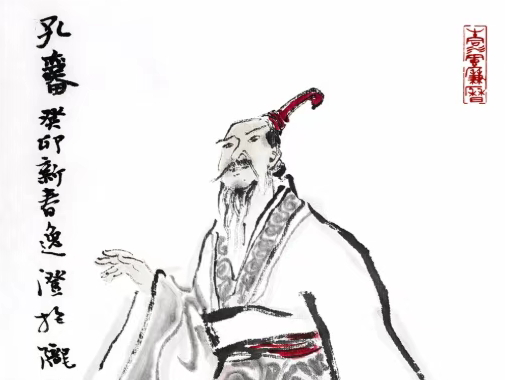 孔奮癸卯新春逸澄於隴